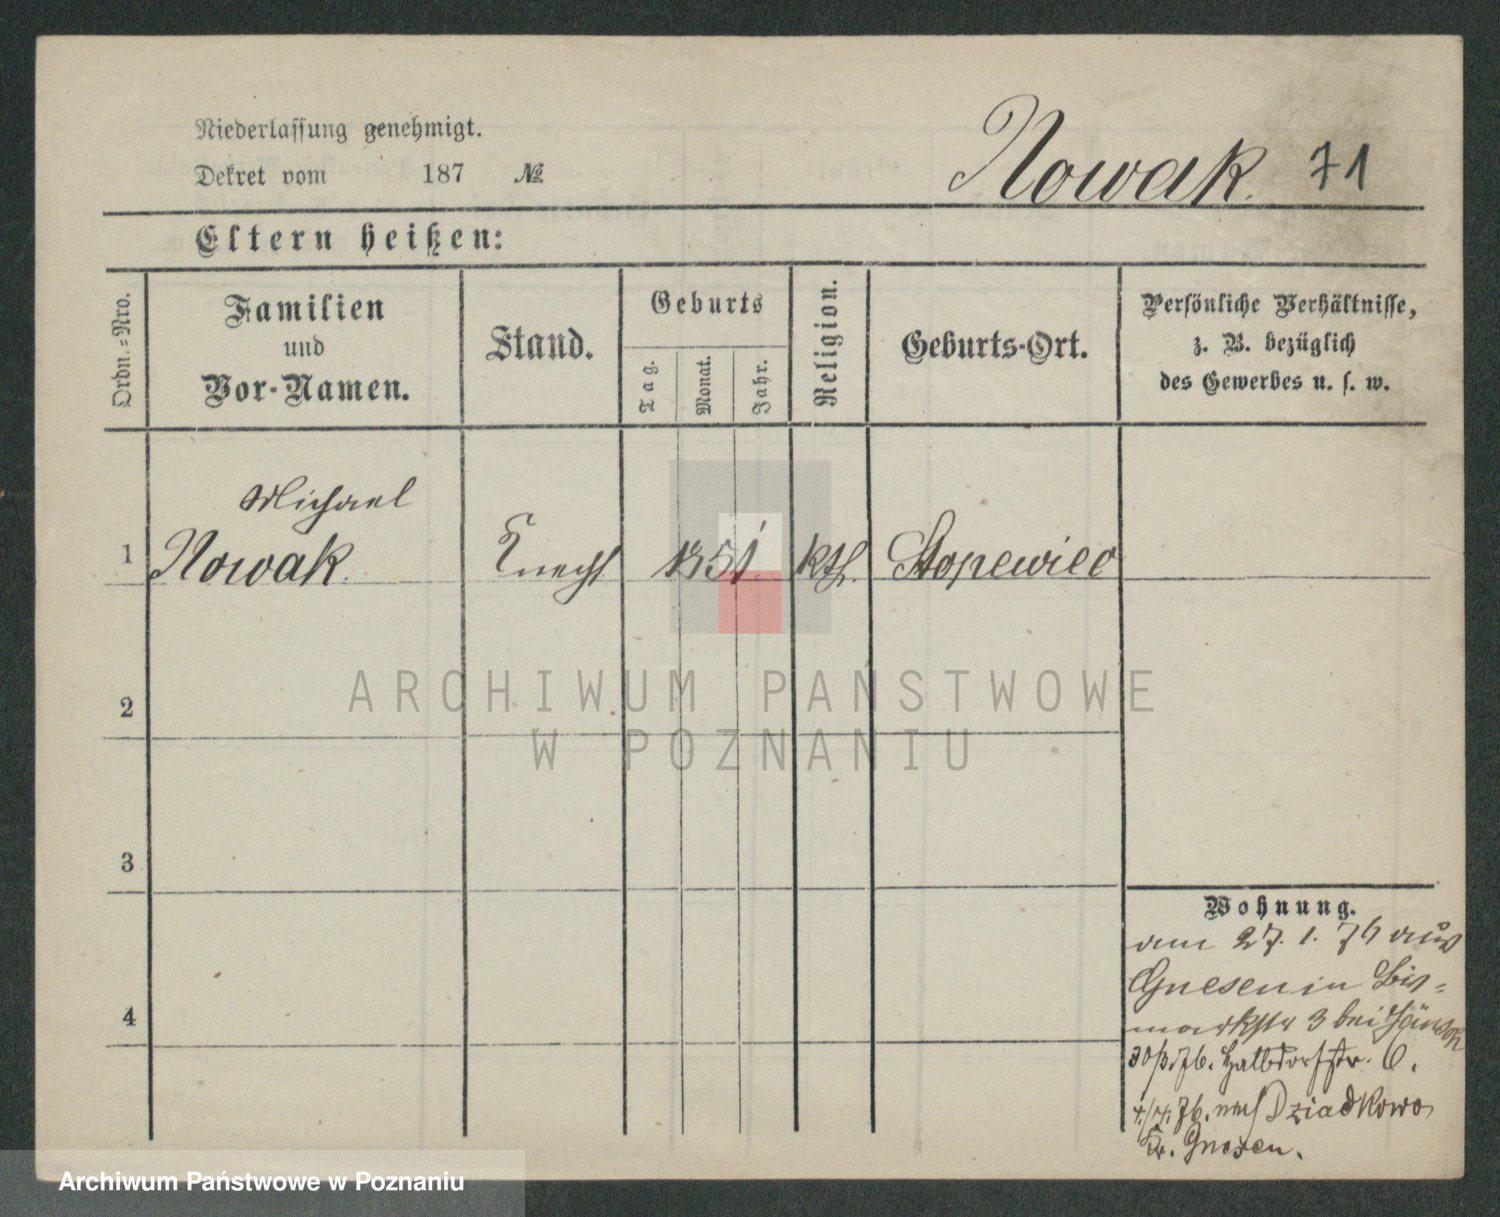 Niederlassung genehmigt.
Dekret vom 187 №
Nowak. 71
Eltern heißen:
Ordn.-Nro.
Familien
und
Vor-Namen.
Stand.
Geburts
Tag.
Monat.
Jahr.
Religion.
Geburts-Ort.
Persönliche Verhältnisse,
z. B. bezüglich
des Gewerbes u. s. w.
Michael
1 Nowak. Knecht 1851 kth. Stopewico
2
3
4
Wohnung.
am 27. 1. 76 aus
Gnesen in Bis-
markstr 3 bei
30/3.76. Halbdorfstr. 6.
4/4.76. nach Dziadkowo
Kr. Gnesen.
ARCHIWUM PAŃSTWOWE
W POZNANIU
Archiwum Państwowe w Poznaniu